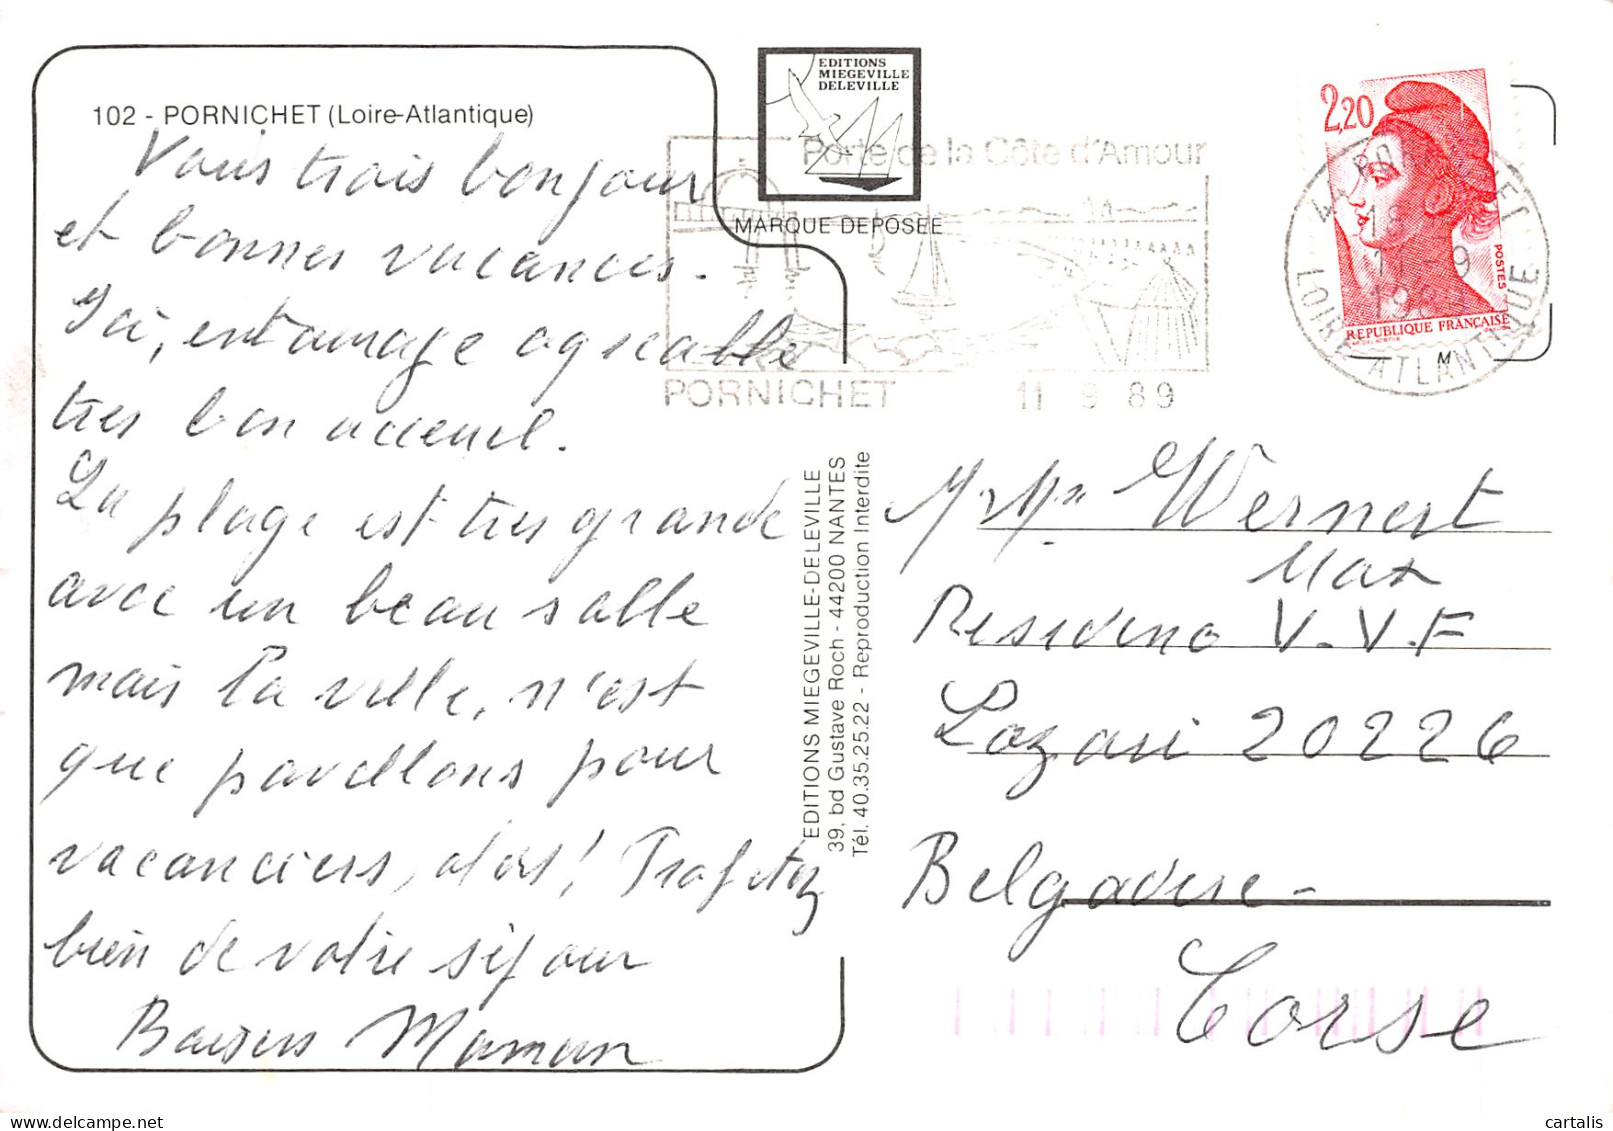 102 - PORNICHET (Loire-Atlantique)
Vous trois bonjour
et bonnes vacances.
Ici, entourage agreable
tres bon acceuil.
La plage est tres grande
avec un beau sable
mais la ville, n'est
que pavillons pour
vacanciers, alors! Profitez
bien de votre séjour
Baisers Maman
EDITIONS
MIEGEVILLE
DELEVILLE
MARQUE DEPOSEE
Porte de la Côte d'Amour
PORNICHET 11 9 89
2,20
POSTES
REPUBLIQUE FRANÇAISE
44 PORNICHET
11 - 9
LOIRE ATLANTIQUE
M
EDITIONS MIEGEVILLE-DELEVILLE
39, bd Gustave Roch - 44200 NANTES
Tél. 40.35.25.22 - Reproduction Interdite
Wernert
Max
Residence V.V.F
Lozari 20226
Belgodere -
Corse
cartalis
delcampe.net